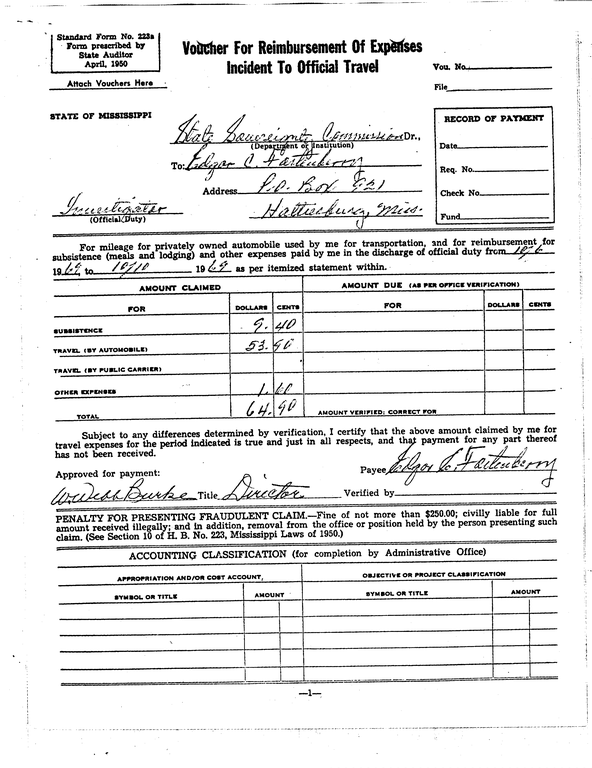 Standard Form No. 223a
Form prescribed by
State Auditor
April, 1950
Attach Vouchers Here
Voucher For Reimbursement Of Expenses
Incident To Official Travel
Vou. No.
File
STATE OF MISSISSIPPI
RECORD OF PAYMENT
Date
Req. No.
Check No.
Fund
State Sovereignty Commission Dr.,
(Department or Institution)
To: Edgar C. Fortenberry
Address P.O. Box
Investigator
(Official Duty)
Hattiesburg, Miss.
For mileage for privately owned automobile used by me for transportation, and for reimbursement for
subsistence (meals and lodging) and other expenses paid by me in the discharge of official duty from 10/6
1969, to 10/10 1969 as per itemized statement within.
AMOUNT CLAIMED
AMOUNT DUE (AS PER OFFICE VERIFICATION)
FOR DOLLARS CENTS FOR DOLLARS CENTS
SUBSISTENCE 9.40
TRAVEL (BY AUTOMOBILE) 53.90
TRAVEL (BY PUBLIC CARRIER)
OTHER EXPENSES 1.60
TOTAL 64.90 AMOUNT VERIFIED: CORRECT FOR
Subject to any differences determined by verification, I certify that the above amount claimed by me for
travel expenses for the period indicated is true and just in all respects, and that payment for any part thereof
has not been received.
Payee Edgar C. Fortenberry
Approved for payment:
W. Webb Burke Title Director Verified by
PENALTY FOR PRESENTING FRAUDULENT CLAIM.—Fine of not more than $250.00; civilly liable for full
amount received illegally; and in addition, removal from the office or position held by the person presenting such
claim. (See Section 10 of H. B. No. 223, Mississippi Laws of 1950.)
ACCOUNTING CLASSIFICATION (for completion by Administrative Office)
APPROPRIATION AND/OR COST ACCOUNT, OBJECTIVE OR PROJECT CLASSIFICATION
SYMBOL OR TITLE AMOUNT SYMBOL OR TITLE AMOUNT
—1—